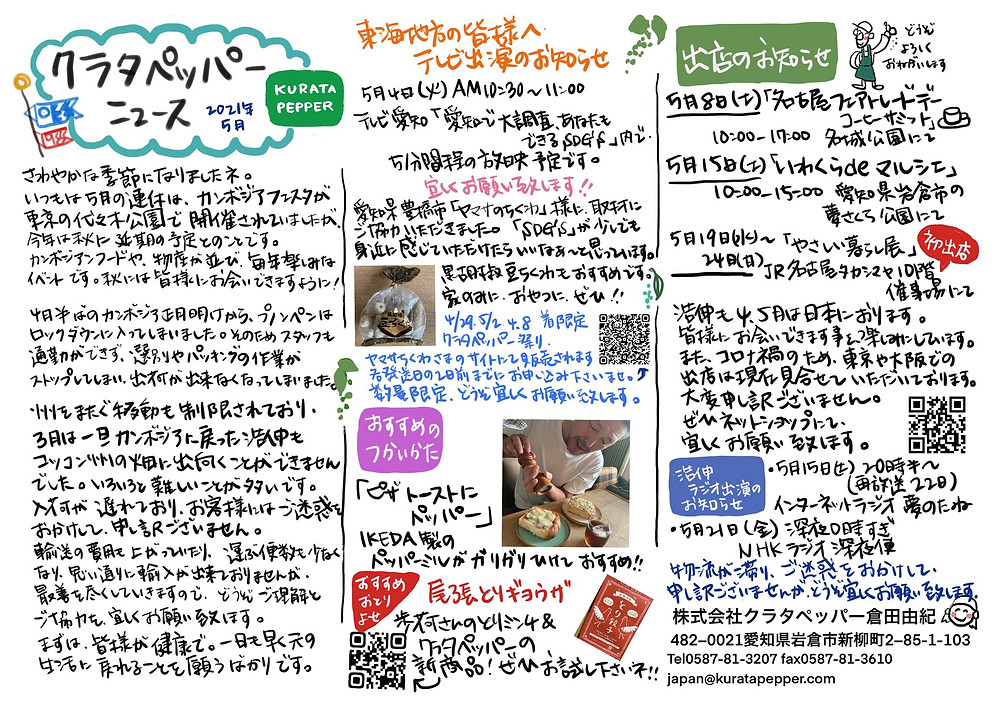 クラタペッパー
ニュース
2021年
5月
KURATA
PEPPER
さわやかな季節になりましたネ。
いつもは5月の連休は、カンボジアフェスタが
東京の代々木公園で開催されていましたが、
今年は秋に延期の予定とのことです。
カンボジアンフードや、物産が並び、毎年楽しみな
イベントです。秋には皆様にお会いできますように!
4月半ばのカンボジアお正月明けから、プノンペンは
ロックダウンに入ってしまいました。そのためスタッフも
通勤ができず、選別やパッキングの作業が
ストップしてしまい、出荷が出来なくなってしまいました。
州をまたぐ移動も制限されており、
3月は一旦カンボジアに戻った浩伸も
コッコン州の畑に出向くことができません
でした。いろいろと難しいことが多いです。
入荷が遅れており、お客様にはご迷惑を
おかけして、申し訳ございません。
輸送の費用も上がっていたり、運ぶ便数も少なく
なり、思い通りに輸入が出来ておりませんが、
最善を尽くしていきますので、どうぞご理解と
ご協力を、宜しくお願い致します。
まずは、皆様が健康で、一日も早く元の
生活に戻れることを願うばかりです。
東海地方の皆様へ
テレビ出演のお知らせ
5月4日(火)AM10:30〜11:00
テレビ愛知「愛知で大調査、あなたも
できるSDG'S」内で、
5分間程の放映予定です。
宜しくお願い致します!!
愛知県豊橋市「ヤマサのちくわ」様に、取材に
ご協力いただきました。「SDG'S」が少しでも
身近に感じていただけたらいいなぁ〜と思っています!
黒胡椒豆ちくわもおすすめです。
家のみに、おやつに、ぜひ!!
4/29.5/2.4.8 着限定
クラタペッパー祭り、
ヤマサちくわさまのサイトにて販売されます
各発送日の2日前までにお申し込み下さいませ。
数量限定、どうぞ宜しくお願い致します。
おすすめの
つかいかた
「ピザトーストに
ペッパー」
IKEDA製の
ペッパーミルがガリガリひけておすすめ!!
おすすめ
おとり
よせ
尾張とりギョウザ
さんのとりミンチ&
クラタペッパーの
新商品!ぜひ、お試し下さいネ!!
出店のお知らせ
どうぞ
よろしく
おねがいします
5月8日(土)「名古屋フェアトレードデー
コーヒーサミット」
10:00-17:00 名城公園にて
5月15日(土)「いわくらdeマルシェ」
10:00-15:00 愛知県岩倉市の
夢さくら公園にて
5月19日(水)〜
24日(月)
「やさしい暮らし展」
初出店
JR名古屋タカシマヤ10階
催事場にて
浩伸も4、5月は日本におります。
皆様にお会いできます事を楽しみにしています。
また、コロナ禍のため、東京や大阪での
出店は現在見合せていただいております。
大変申し訳ございません。
ぜひネットショップにて、
宜しくお願い致します。
浩伸
ラジオ出演の
お知らせ
・5月15日(土)20時半〜
(再放送22日)
インターネットラジオ 夢のたね
・5月21日(金)深夜0時すぎ
NHKラジオ深夜便
物流が滞り、ご迷惑をおかけして、
申し訳ございませんが、どうぞ宜しくお願い致します。
株式会社クラタペッパー倉田由紀
482-0021愛知県岩倉市新柳町2-85-1-103
Tel0587-81-3207 fax0587-81-3610
japan@kuratapepper.com